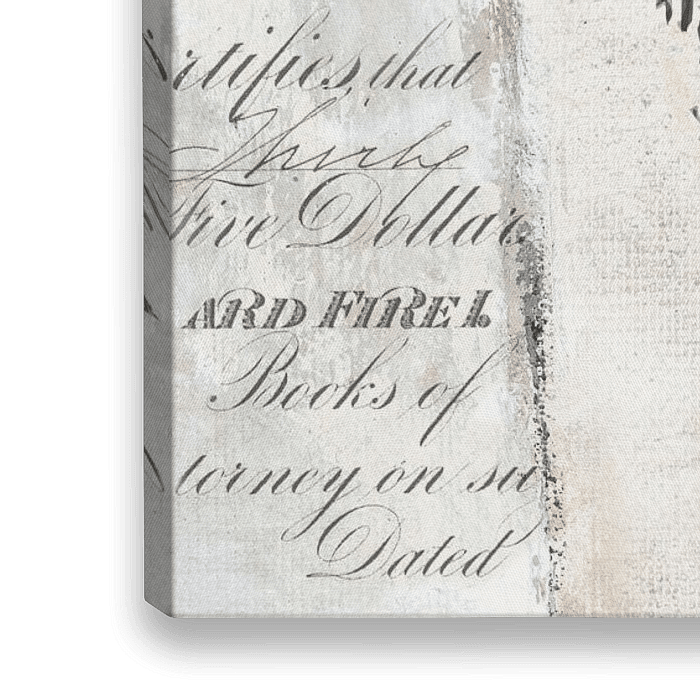 rtifies, that
Thirty
Five Dollar
ARD FIRE I
Books of
torney on su
Dated